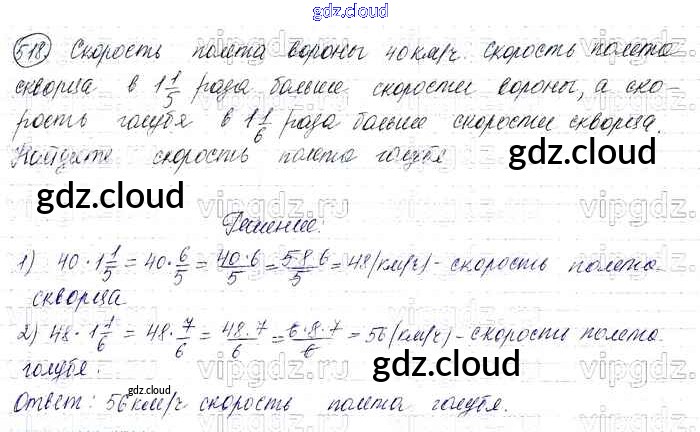 gdz.cloud
518) Скорость полета вороны 40 км/ч. Скорость полета
скворца в 1 1/5 раза больше скорости вороны, а ско-
рость голубя в 1 1/6 раза больше скорости скворца.
Найдите скорость полета голубя
gdz.cloud
gdz.cloud
vipgdz.ru
Решение:
1) 40 · 1 1/5 = 40 · 6/5 = 40·6/5 = 5·8·6/5 = 48 (км/ч) - скорость полета
скворца
2) 48 · 1 1/6 = 48 · 7/6 = 48·7/6 = 6·8·7/6 = 56 (км/ч) - скорости полета
голубя.
vipgdz.ru
gdz.cloud
gdz.cloud
Ответ: 56 км/ч скорость полета голубя.